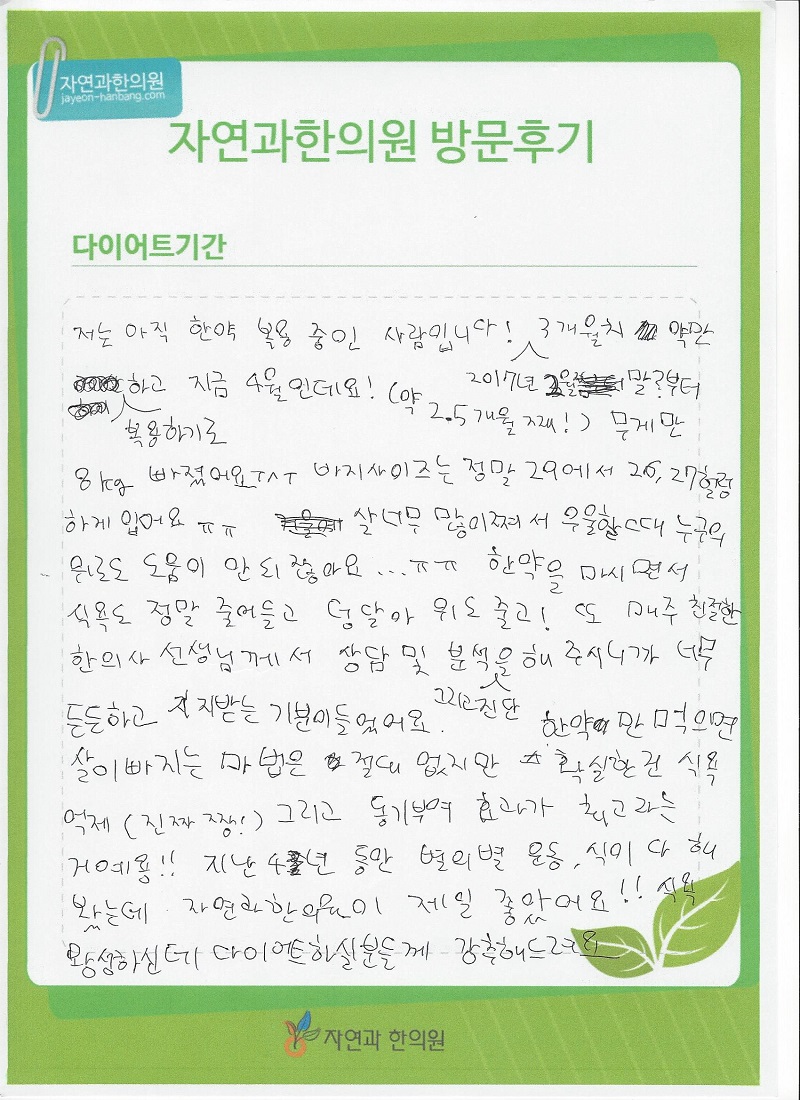 자연과한의원
jayeon-hanbang.com
자연과한의원 방문후기
다이어트기간
저는 아직 한약 복용 중인 사람입니다! 3개월치 약만
복용하기로
하고 지금 4월인데요! (약 2.5개월째!) 2017년 말?부터 무게만
8kg 빠졌어요ㅜㅅㅜ 바지사이즈는 정말 29에서 26, 27헐렁
하게 입어요 ㅠㅠ 살너무 많이쪄서 우울할때 누구의
위로도 도움이 안되잖아요...ㅠㅠ 한약을 마시면서
식욕도 정말 줄어들고 덩달아 위도 줄고! 또 매주 친절한
한의사 선생님께서 상담 및 분석을 해주시니까 너무
그리고진단
든든하고 지지받는 기분이들었어요. 한약만 먹으면
살이빠지는 마법은 절대 없지만 확실한건 식욕
억제 (진짜 짱!) 그리고 동기부여 효과가 최고라는
거예용!! 지난 4년 동안 별의별 운동, 식이 다 해
봤는데 자연과한의원이 제일 좋았어요!! 식욕
왕성하신데 다이어트하실분들께 강추해드려요
자연과 한의원